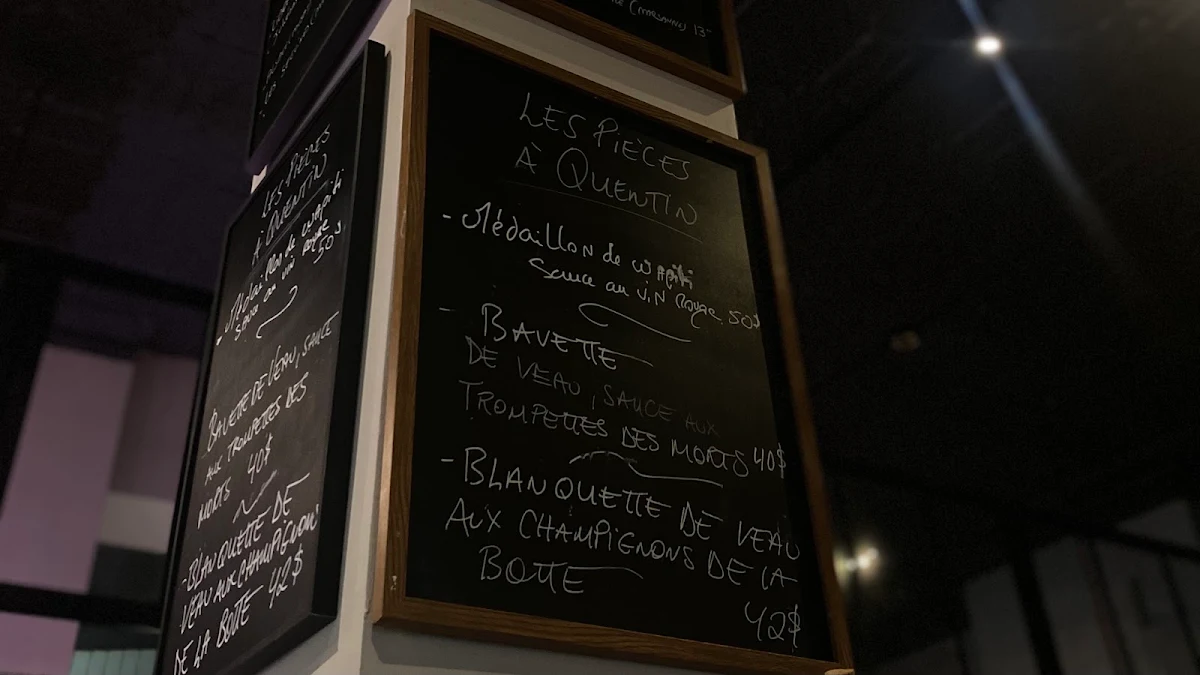 (MARSANNE) 13"
LES PIÈCES
À QUENTIN
- Médaillon de wapiti
Sauce au vin Rouge 50$
- BAVETTE
DE VEAU, SAUCE AUX
TROMPETTES DES MORTS 40$
- BLANQUETTE DE VEAU
AUX CHAMPIGNONS DE LA
BOTTE
42$
LES PIÈCES
À QUENTIN
- Médaillon de wapiti
Sauce au vin Rouge
50$
BAVETTE DE VEAU, SAUCE
AUX TROMPETTES DES
MORTS 40$
- BLANQUETTE DE
VEAU AUX CHAMPIGNONS
DE LA BOTTE 42$